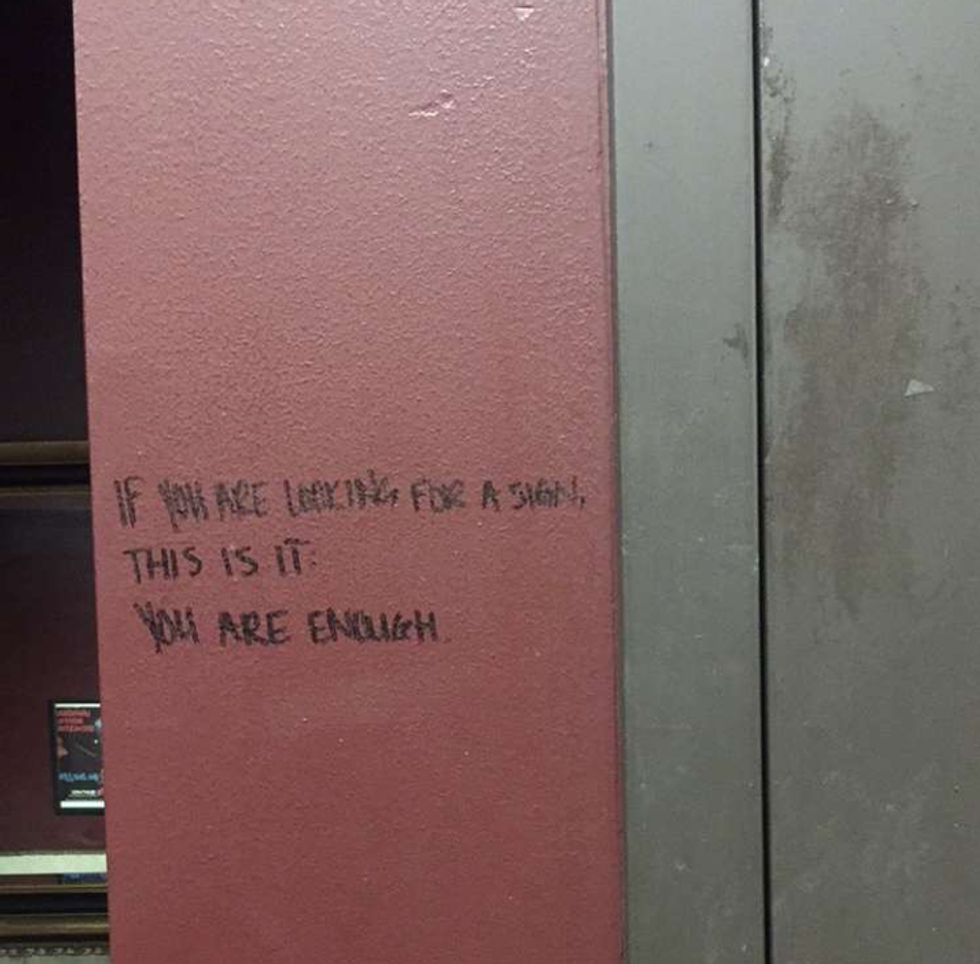 IF YOU ARE LOOKING FOR A SIGN,
THIS IS IT:
YOU ARE ENOUGH.